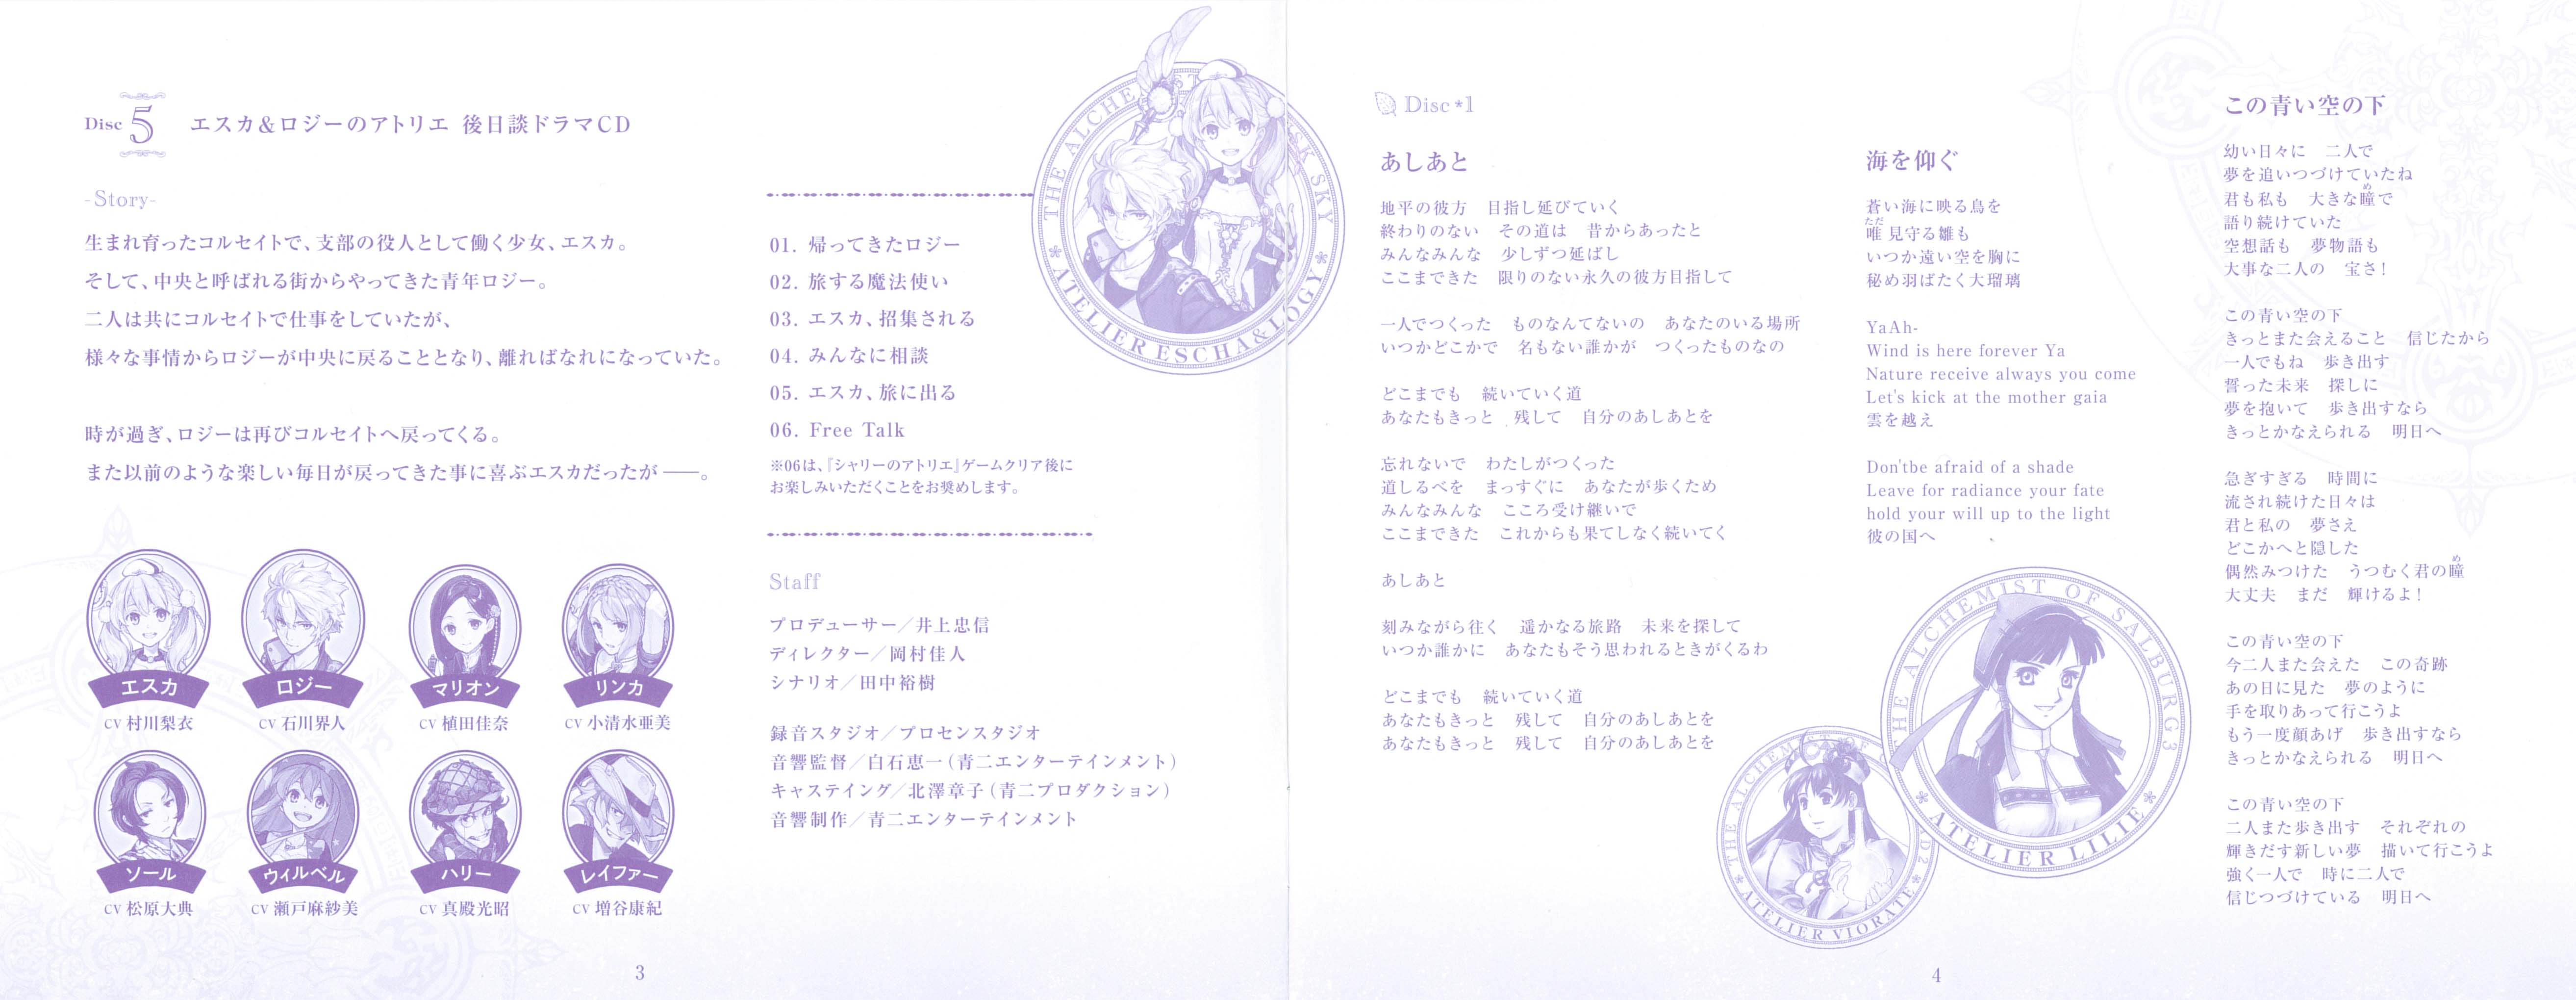 Disc 5 エスカ＆ロジーのアトリエ 後日談ドラマCD
-Story-
生まれ育ったコルセイトで、支部の役人として働く少女、エスカ。
そして、中央と呼ばれる街からやってきた青年ロジー。
二人は共にコルセイトで仕事をしていたが、
様々な事情からロジーが中央に戻ることとなり、離ればなれになっていた。
時が過ぎ、ロジーは再びコルセイトへ戻ってくる。
また以前のような楽しい毎日が戻ってきた事に喜ぶエスカだったが ――。
エスカ
CV 村川梨衣
ロジー
CV 石川界人
マリオン
CV 植田佳奈
リンカ
CV 小清水亜美
ソール
CV 松原大典
ウィルベル
CV 瀬戸麻紗美
ハリー
CV 真殿光昭
レイファー
CV 増谷康紀
01. 帰ってきたロジー
02. 旅する魔法使い
03. エスカ、招集される
04. みんなに相談
05. エスカ、旅に出る
06. Free Talk
※06は、『シャリーのアトリエ』ゲームクリア後に
お楽しみいただくことをお奨めします。
Staff
プロデューサー／井上忠信
ディレクター／岡村佳人
シナリオ／田中裕樹
録音スタジオ／プロセンスタジオ
音響監督／白石恵一（青二エンターテインメント）
キャステイング／北澤章子（青二プロダクション）
音響制作／青二エンターテインメント
ATELIER ESCHA&LOGY
3
Disc*1
あしあと
地平の彼方　目指し延びていく
終わりのない　その道は　昔からあったと
みんなみんな　少しずつ延ばし
ここまできた　限りのない永久の彼方目指して
一人でつくった　ものなんてないの　あなたのいる場所
いつかどこかで　名もない誰かが　つくったものなの
どこまでも　続いていく道
あなたもきっと　残して　自分のあしあとを
忘れないで　わたしがつくった
道しるべを　まっすぐに　あなたが歩くため
みんなみんな　こころ受け継いで
ここまできた　これからも果てしなく続いてく
あしあと
刻みながら往く　遥かなる旅路　未来を探して
いつか誰かに　あなたもそう思われるときがくるわ
どこまでも　続いていく道
あなたもきっと　残して　自分のあしあとを
あなたもきっと　残して　自分のあしあとを
海を仰ぐ
蒼い海に映る鳥を
ただ
唯 見守る雛も
いつか遠い空を胸に
秘め羽ばたく大瑠璃
YaAh-
Wind is here forever Ya
Nature receive always you come
Let's kick at the mother gaia
雲を越え
Don'tbe afraid of a shade
Leave for radiance your fate
hold your will up to the light
彼の国へ
THE ALCHEMIST OF SALBURG3
ATELIER LILIE
ATELIER VIORATE
この青い空の下
幼い日々に　二人で
夢を追いつづけていたね
め
君も私も　大きな瞳で
語り続けていた
空想話も　夢物語も
大事な二人の　宝さ！
この青い空の下
きっとまた会えること　信じたから
一人でもね　歩き出す
誓った未来　探しに
夢を抱いて　歩き出すなら
きっとかなえられる　明日へ
急ぎすぎる　時間に
流され続けた日々は
君と私の　夢さえ
どこかへと隠した
め
偶然みつけた　うつむく君の瞳
大丈夫　まだ　輝けるよ！
この青い空の下
今二人また会えた　この奇跡
あの日に見た　夢のように
手を取りあって行こうよ
もう一度顔あげ　歩き出すなら
きっとかなえられる　明日へ
この青い空の下
二人また歩き出す　それぞれの
輝きだす新しい夢　描いて行こうよ
強く一人で　時に二人で
信じつづけている　明日へ
4